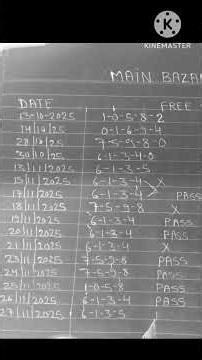 KINEMASTER
MAIN BAZA
DATE FREE
13-10-2025 1-0-5-8-2
14/10/25 0-1-6-9-4
28/10/25 7-5-9-8-0
30/10/25 6-1-3-4-0
13/11/2025 6-1-3-5
15/11/2025 6-1-3-4 X
17/11/2025 6-1-3-4 PASS
18/11/2025 7-5-9-8 X
19/11/2025 6-1-3-4 PASS
20/11/2025 6-1-3-4 PASS
21/11/2025 6-1-3-4 X
22/11/2025 7-5-9-8 PASS
24/11/2025 7-5-9-8 PASS
25/11/2025 1-0-5-8 PASS
26/11/2025 6-1-3-4 PASS
27/11/2025 6-1-3-5